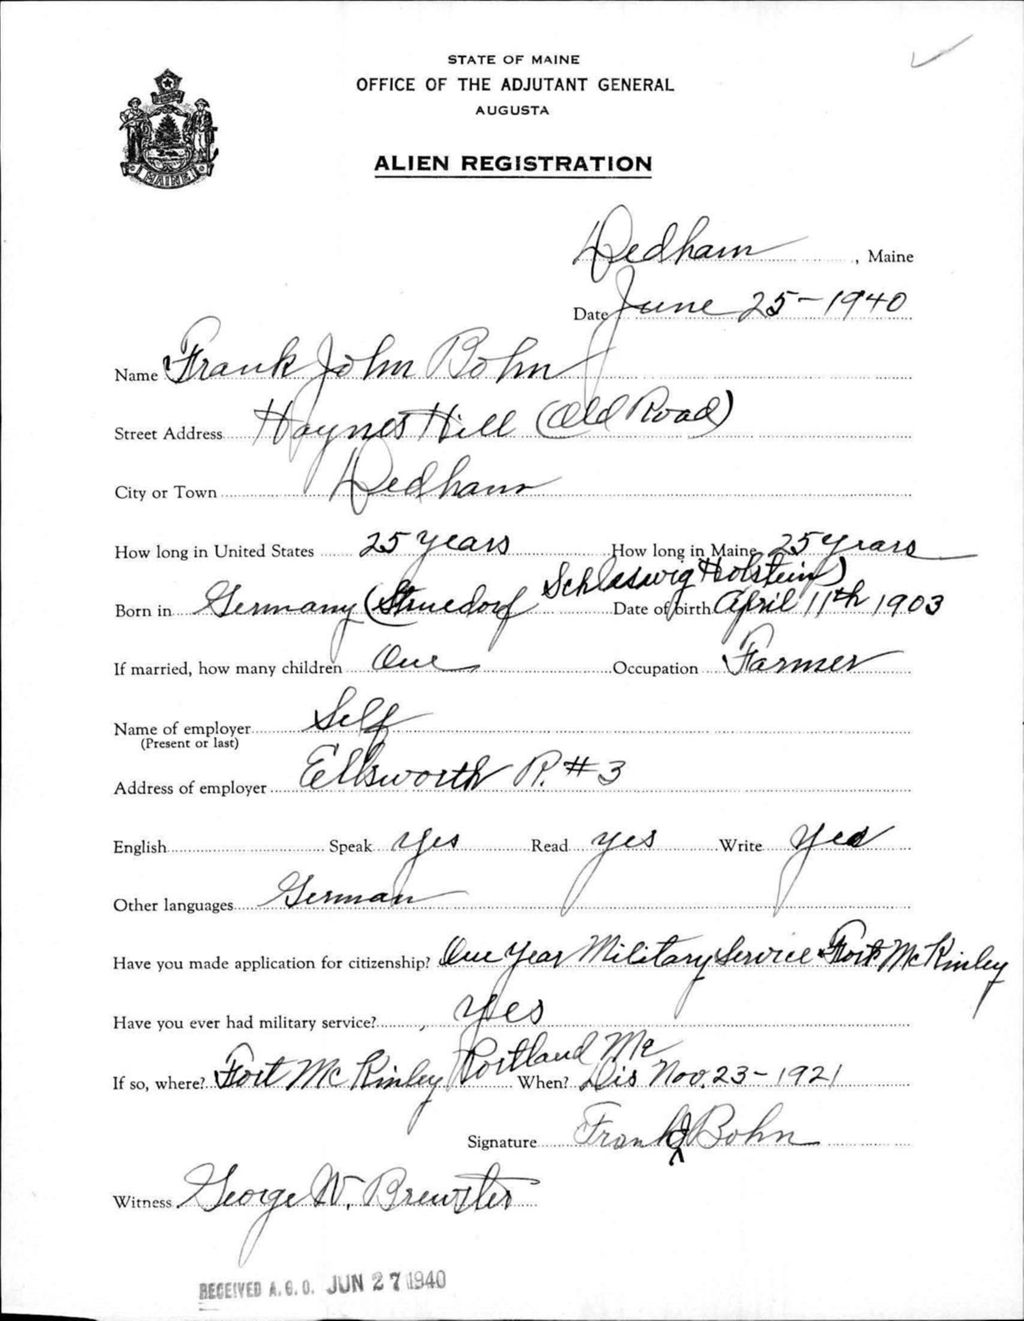 STATE OF MAINE
OFFICE OF THE ADJUTANT GENERAL
AUGUSTA
ALIEN REGISTRATION
MAINE
Dedham, Maine
Date June 25-1940
Name Frank John Bohn
Street Address Haynes Hill (Old Road)
City or Town Dedham
How long in United States 25 years How long in Maine 25 years
Schleswig Holstein)
Born in Germany (Struedorf Date of birth April 11th 1903
If married, how many children One Occupation Farmer
Name of employer Self
(Present or last)
Address of employer Ellsworth R. #3
English Speak Yes Read yes Write Yes
Other languages German
Have you made application for citizenship? One Year Military Service Fort McKinley
Have you ever had military service? Yes
If so, where? Fort McKinley Portland Me When? Dis Nov. 23-1921
Signature Frank J Bohn
Witness George W. Brewster
RECEIVED A.G.O. JUN 27 1940